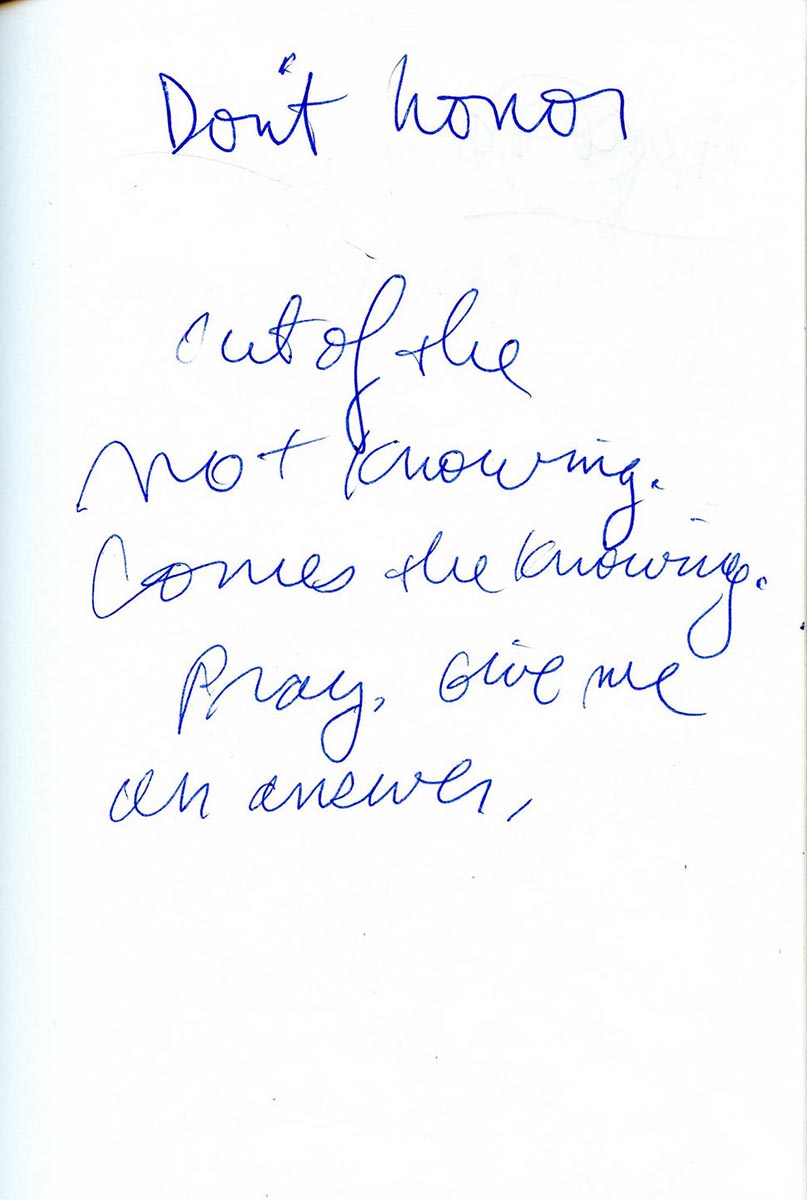 Don't honor
out of the
not knowing.
Comes the knowing.
Pray, Give me
an answer,